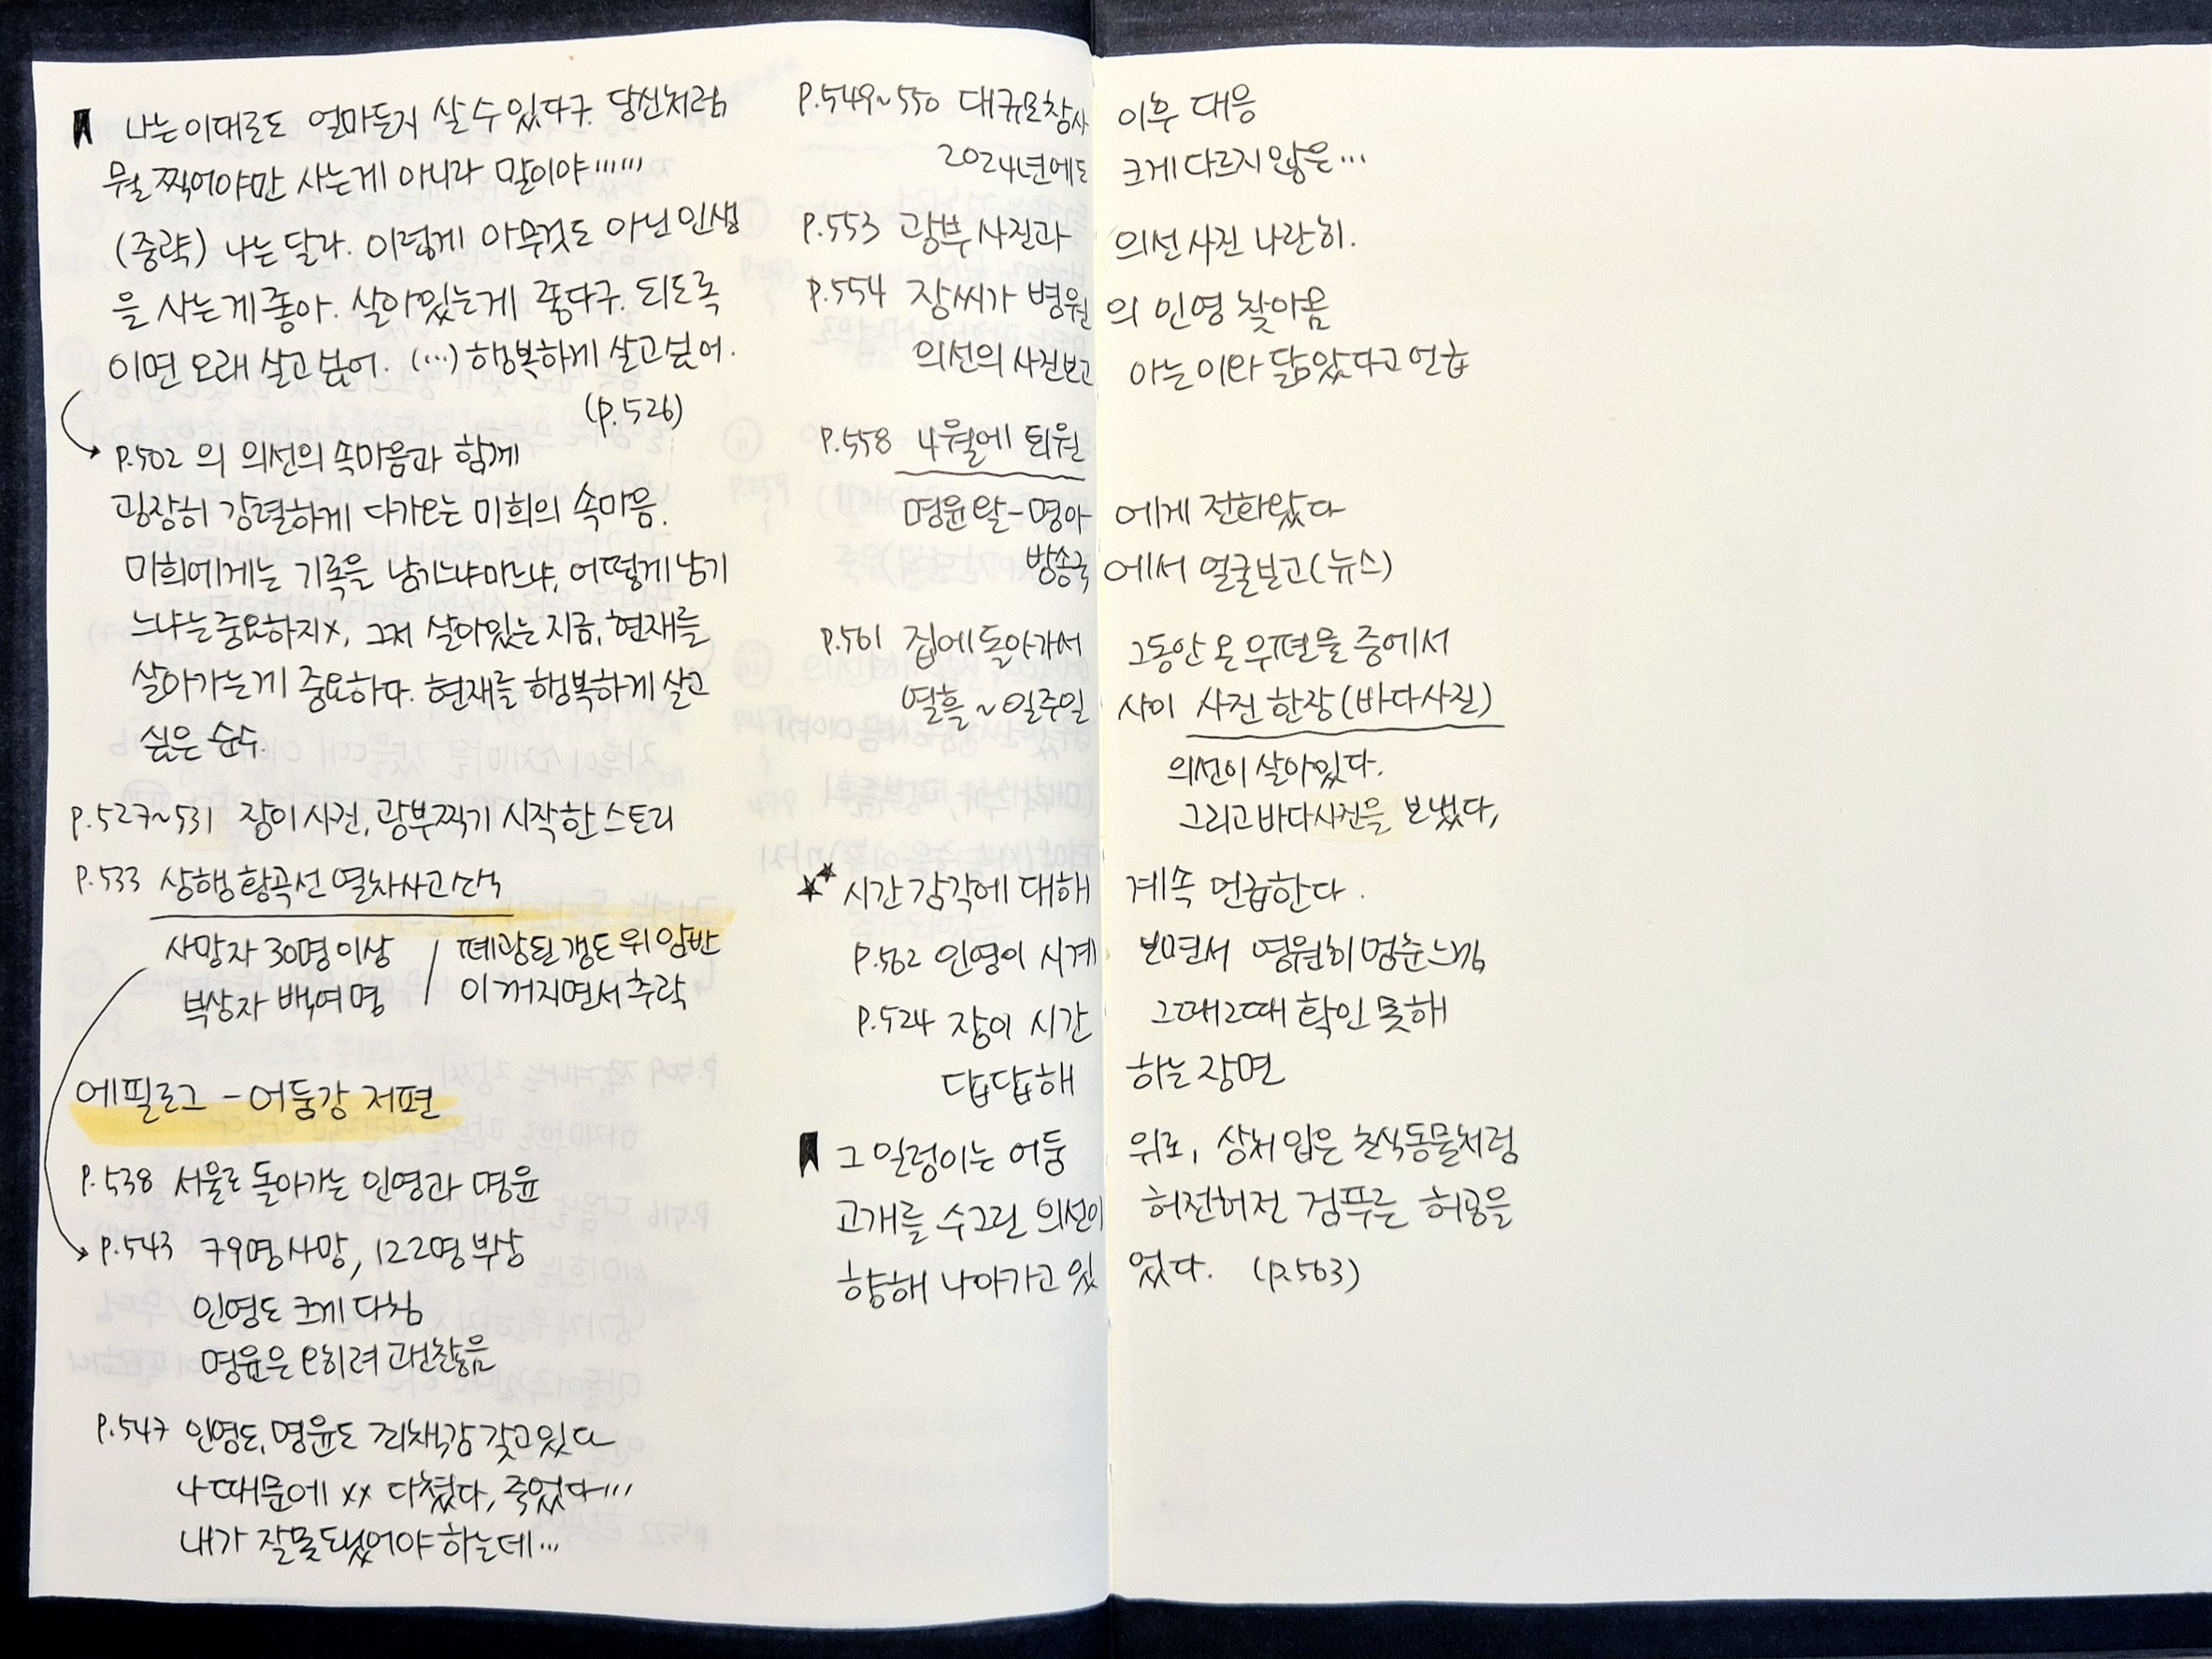 나는 이대로도 얼마든지 살 수 있다구. 당신처럼
뭘 찍어야만 사는게 아니라 말이야……
(중략) 나는 달라. 이렇게 아무것도 아닌 인생
을 사는게 좋아. 살아있는게 좋다구. 되도록
이면 오래 살고 싶어. (…) 행복하게 살고 싶어.
(p.526)
P.502 의 의선의 속마음과 함께
굉장히 강렬하게 다가오는 미희의 속마음.
미희에게는 기록을 남기느냐마느냐, 어떻게 남기
느냐는 중요하지x, 그저 살아있는 지금, 현재를
살아가는게 중요하다. 현재를 행복하게 살고
싶은 순수.
P.527~531 장이 사진, 광부찍기 시작한 스토리
P.533 상행 황곡선 열차사고 소식
사망자 30명 이상 / 폐광된 갱도 위 암반
부상자 백여 명 / 이 꺼지면서 추락
에필로그 - 어둠강 저편
P.538 서울로 돌아가는 인영과 명윤
P.543 79명 사망, 122명 부상
인영도 크게 다침
명윤은 오히려 괜찮음
P.547 인영도, 명윤도 죄책감 갖고있다
나 때문에 xx 다쳤다, 죽었다…
내가 잘못됐었어야 하는데…
P.549~550 대규모참사 이후 대응
2024년에도 크게 다르지 않은…
P.553 광부 사진과 의선 사진 나란히.
P.554 장씨가 병원의 인영 찾아옴
의선의 사진보고 아는 이와 닮았다고 언급
P.558 4월에 퇴원
명윤 왈 - 명아에게 전화왔다
방송국에서 얼굴보고 (뉴스)
P.561 집에 돌아가서 그동안 온 우편물 중에서
열흘 ~ 일주일 사이 사진 한장 (바다사진)
의선이 살아있다.
그리고 바다사진을 보냈다,
★★ 시간 감각에 대해 계속 언급한다.
P.562 인영이 시계 보면서 영원히 멈춘 느낌
P.524 장이 시간 그때그때 확인 못해
답답해 하는 장면
그 일렁이는 어둠 위로, 상처 입은 초식동물처럼
고개를 수그린 의선이 허전허전 검푸른 허공을
향해 나아가고 있었다. (p.563)